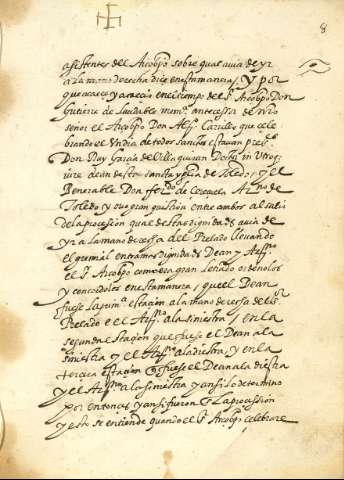 8
asistentes del Arçobpo sobre qual auia de yr
a la mano derecha dize en esta manera, Y por
que acaeçe y acaeçio en el tiempo del Sr Arcobpo Don
Gutierre de laudable memª. antecessor de nro
señor el Arcobpo Don Alº. Carrillo que cele
brando el dia de todos Sanctos estauan pres
Don Ruy Garcia de Villaquiran Doctor in Utroq
iure dean de sta sancta yglia de Toledo, y el
Venerable Don fer do de Cereçuela Arº. de
Toledo y ouo gran question entre ambos al salir
de la procession qual destas dignidades auia de
yr a la mano derecha del Prelado lleuando
el gremial entramos dignidades Dean y
el Sr Arcobpo como era gran letrado
y concordolos en esta manera, que el Dean
fuese la primª estaçion a la mano derecha del Sr
Prelado e el a la siniestra / en la
segunda Staçion que fuese el Dean a la
siniestra y el a la diestra, y en la
tercera estaçion q fuese el Dean a la diestra
y el a la siniestra y ansi lo determino
por entonces y ansi fueron la procession
y esto se entiende quando el Sr Arcobpo celebrare